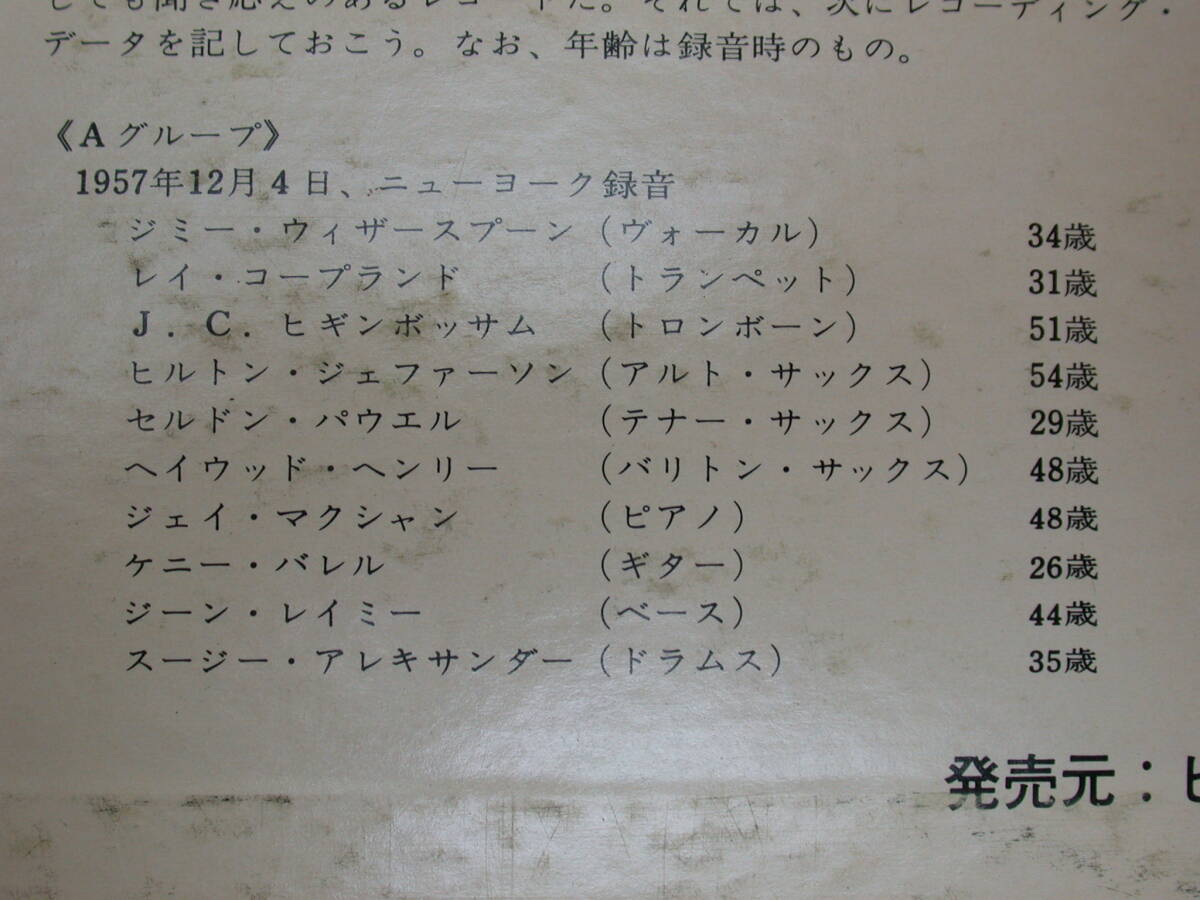 しても聞き応えのあるレコードだ。それでは、次にレコーディング・
データを記しておこう。なお、年齢は録音時のもの。
《Aグループ》
1957年12月4日、ニューヨーク録音
ジミー・ウィザースプーン（ヴォーカル） 34歳
レイ・コープランド（トランペット） 31歳
J．C．ヒギンボッサム（トロンボーン） 51歳
ヒルトン・ジェファーソン（アルト・サックス） 54歳
セルドン・パウエル（テナー・サックス） 29歳
ヘイウッド・ヘンリー（バリトン・サックス） 48歳
ジェイ・マクシャン（ピアノ） 48歳
ケニー・バレル（ギター） 26歳
ジーン・レイミー（ベース） 44歳
スージー・アレキサンダー（ドラムス） 35歳
発売元：ビ